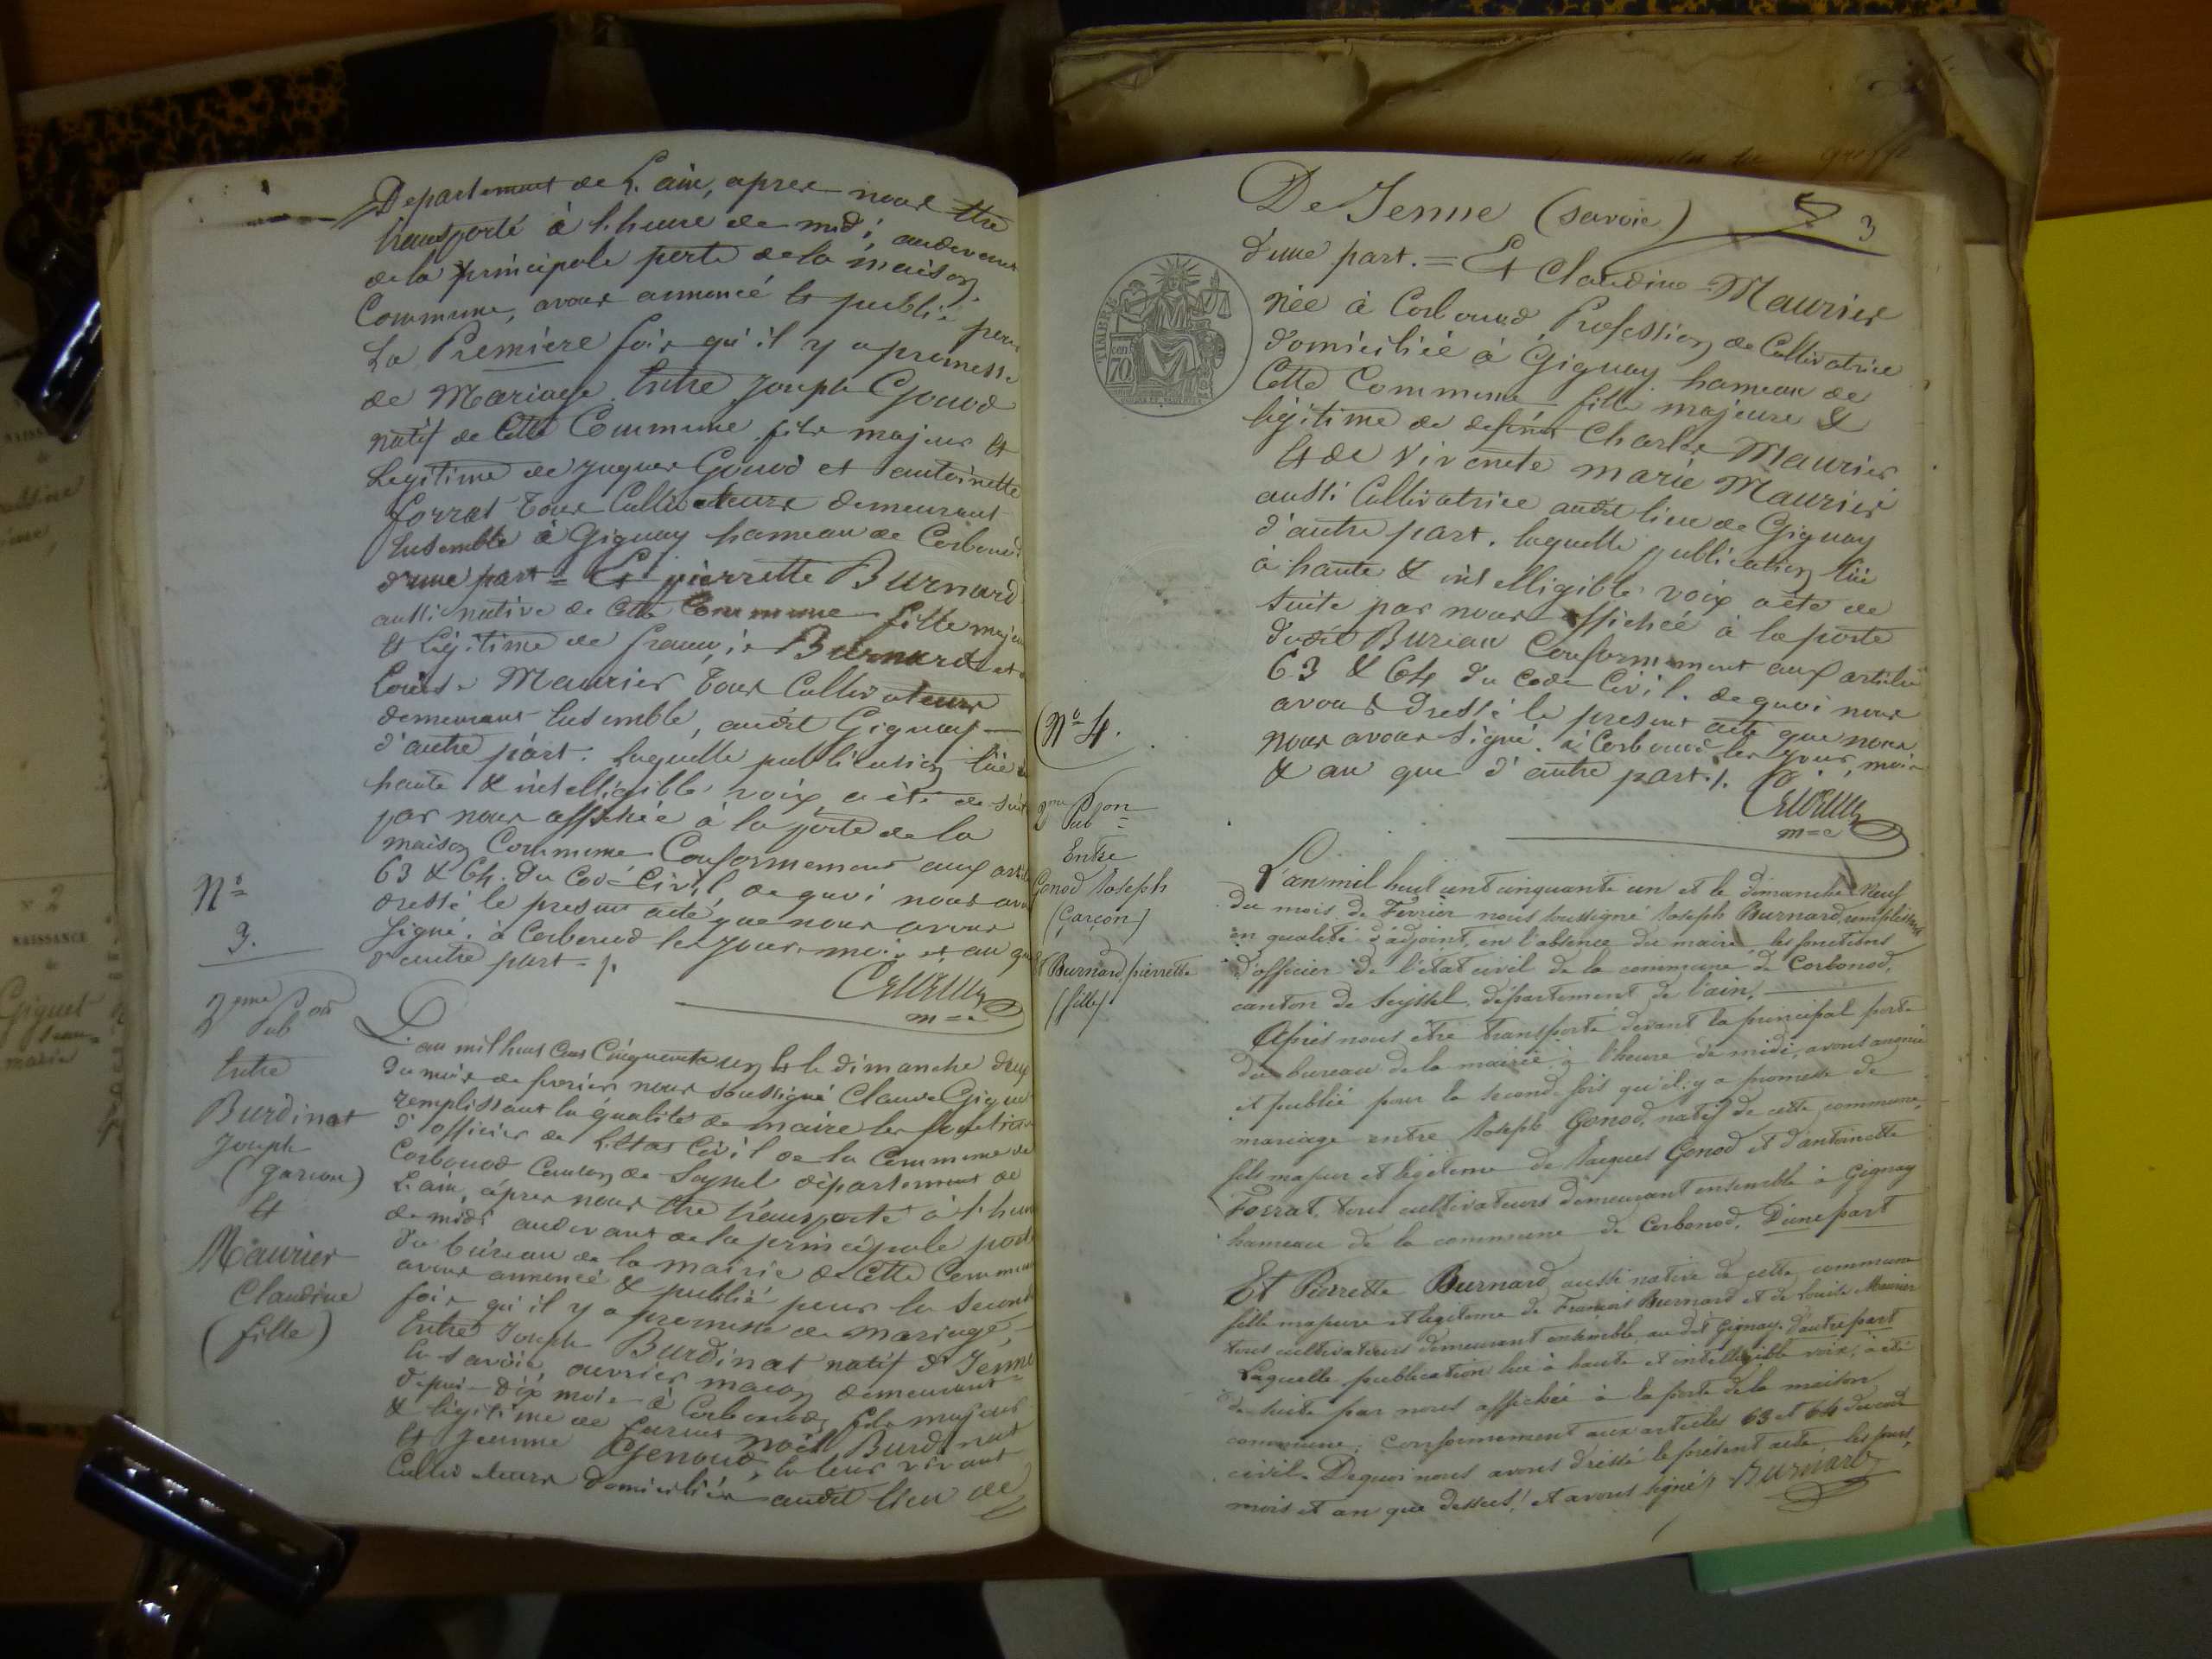 Departement de L'ain, apres nous être
transporté à l'heure de midi, audevant
de la principale porte de la maison
Commune, avons annoncé et publié pour
La Premiere fois qu'il y a promesse
de Mariage Entre Joseph Gonod
natif de Cette Commune fils majeur et
Legitime de Jaques Gonod et antoinette
forrat tous Cultivateurs demeurant
Ensemble à Gignay hameau de Corbonod
d'une part = Et pierrette Burnard
aussi native de Cette Commune fille majeure
et Légitime de françois Burnard et
Louise Maurier tous Cultivateurs
demeurant Ensemble, audit Gignay
d'autre part. Laquelle publication lüe à
haute & intelligible voix, a été de suite
par nous affichée à la porte de la
maison Commune Conformement aux articles
63 & 64 du Code Civil, de quoi nous avons
dressé le present acte que nous avons
signé, à Corbonod les jour, mois et an que
d'autre part =/.
m=e
N°
3.
2eme Pub on
Entre
Burdinat
Joseph
(garcon)
Et
Maurier
Claudine
(fille)
L'an mil huit Cent Cinquante un Et le dimanche deux
du mois de fevrier nous soussigné Claude Gigue
remplissant la qualité de maire les fonctions
d'officier de L'Etat Civil de la Commune de
Corbonod Canton de Seyssel département de
L'ain, àpres nous être transporté à l'heure
de midi audevant de la principale porte
du bureau de la mairie de Cette Commune
avons annoncé & publié pour la seconde
fois qu'il y a promesse de mariage,
Entre Joseph Burdinat natif d'Jenne
En savoie, ouvrier maçon demeurant
depuis dix mois à Corbonod, fils majeur
& légitime de Noël Burdinat
Et Jeanne Genoud, de leur vivant
Cultivateurs Domiciliés audit lieu de
De Jenne (Savoie) 3
d'une part. = Et Claudine Maurier
née à Corbonod, Profession de Cultivatrice
domiciliée à Gignay hameau de
Cette Commune fille majeure &
légitime de défunt Charles Maurier
Et de vivante marie Maurier
aussi Cultivatrice audit lieu de Gignay
d'autre part. laquelle publication lüe
à haute & intelligible voix a été de
suite par nous affichée à la porte
dudit Bureau Conformement aux articles
63 & 64 du Code Civil. de quoi nous
avons dressé le present acte que nous
nous avons signé. à Corbonod les jour, mois
& an que d'autre part./.
m=e
TIMBRE
70
N° 4.
2me Pub on
Entre
Gonod Joseph
(Garçon)
Et Burnard pierrette
(fille)
L'an mil huit cent cinquante un et le dimanche Neuf
du mois de Fevrier nous soussigné Joseph Burnard, remplissant
en qualité d'adjoint, en l'absence du maire, les fonctions
d'officier de l'état civil de la commune de Corbonod,
canton de Seyssel, département de l'ain,
Après nous être transporté devant la principal porte
du bureau de la mairie, à l'heure de midi, avons annoncé
et publié pour la seconde fois qu'il y a promesse de
mariage entre Joseph Gonod, natif de cette commune,
fils majeur et légitime de Jacques Gonod et d'antoinette
Forrat, tous cultivateurs demeurant ensemble à Gignay
hameau de la commune de Corbonod, D'une part
Et Pierrette Burnard, aussi native de cette commune
fille majeure et légitime de François Burnard et de Louise Maurier
tous cultivateurs demeurant ensemble au dit Gignay. D'autre part
Laquelle publication lue à haute et intelligible voix, a été
de suite par nous affichée à la porte de la maison
commune, conformement aux articles 63 et 64 du code
civil. De quoi nous avons dressé le présent acte les jours,
mois et an que dessus, et avons signé. Burnard
NAISSANCE
Giguet
Jean-
marie